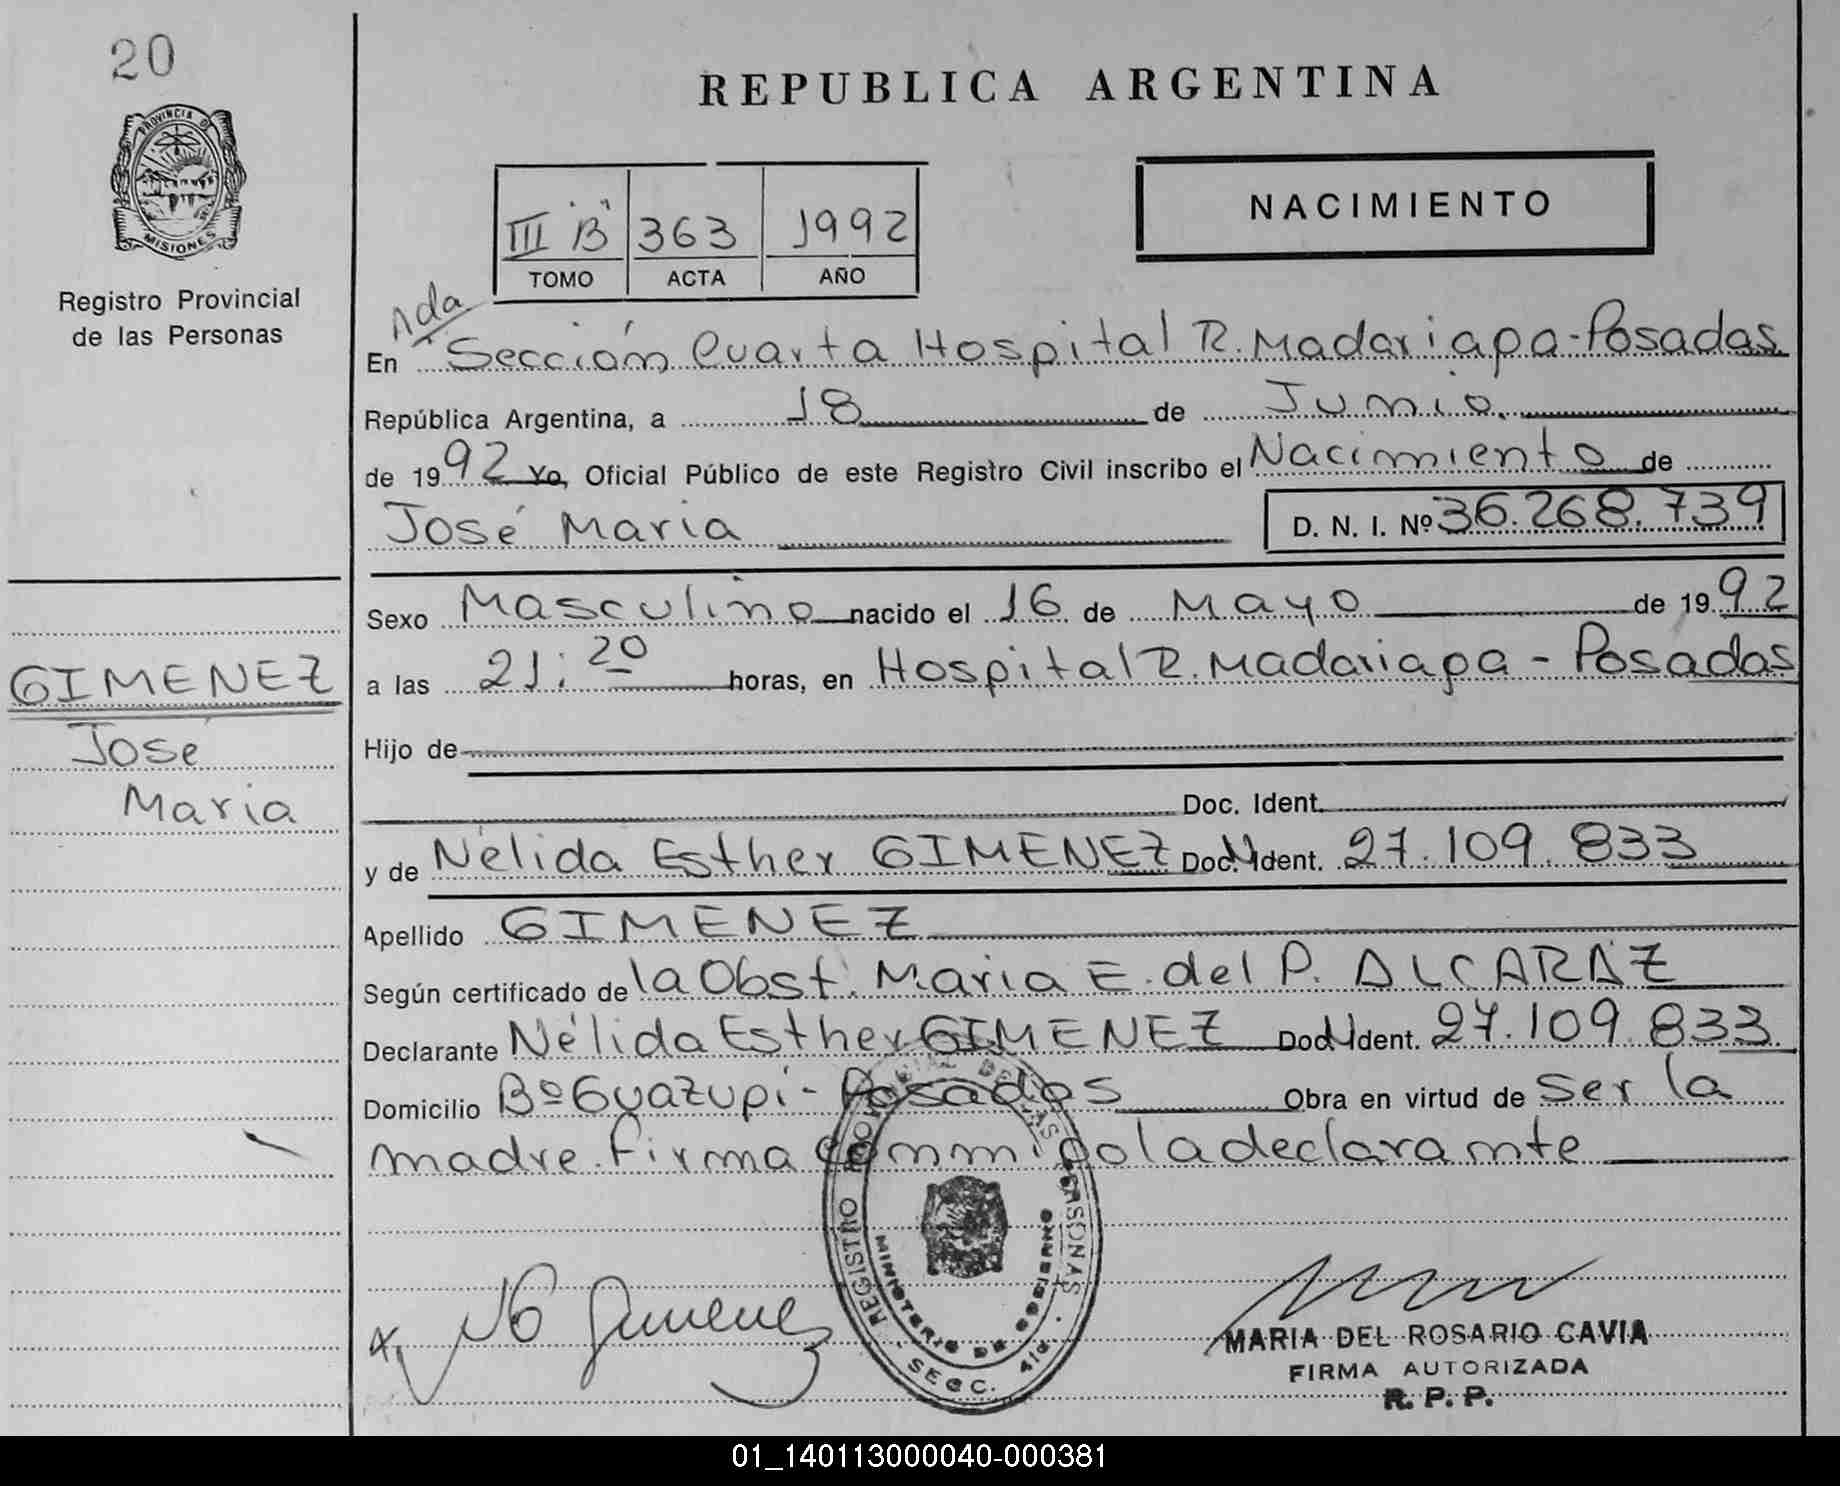 20
PROVINCIA DE
MISIONES
Registro Provincial
de las Personas
GIMENEZ
José
Maria
REPUBLICA ARGENTINA
III "B" 363 1992
TOMO ACTA AÑO
NACIMIENTO
Nda
En Sección Cuarta Hospital R. Madariaga-Posadas
República Argentina, a 18 de Junio
de 1992 Yo, Oficial Público de este Registro Civil inscribo el Nacimiento de
José Maria D. N. I. Nº 36.268.739
Sexo Masculino nacido el 16 de Mayo de 1992
a las 21:20 horas, en Hospital R. Madariaga - Posadas
Hijo de
Doc. Ident.
y de Nélida Esther GIMENEZ Doc. N Ident. 27.109.833
Apellido GIMENEZ
Según certificado de la Obst. Maria E. del P. ALCARAZ
Declarante Nélida Esther GIMENEZ Doc. N Ident. 27.109.833
Domicilio Bº Guazupi - Posadas Obra en virtud de ser la
madre. firma conmigo la declarante
REGISTRO PROVINCIAL DE LAS PERSONAS
MINISTERIO DE GOBIERNO
SECC. 4ta.
Gimenez
MARIA DEL ROSARIO CAVIA
FIRMA AUTORIZADA
R. P. P.
01_140113000040-000381